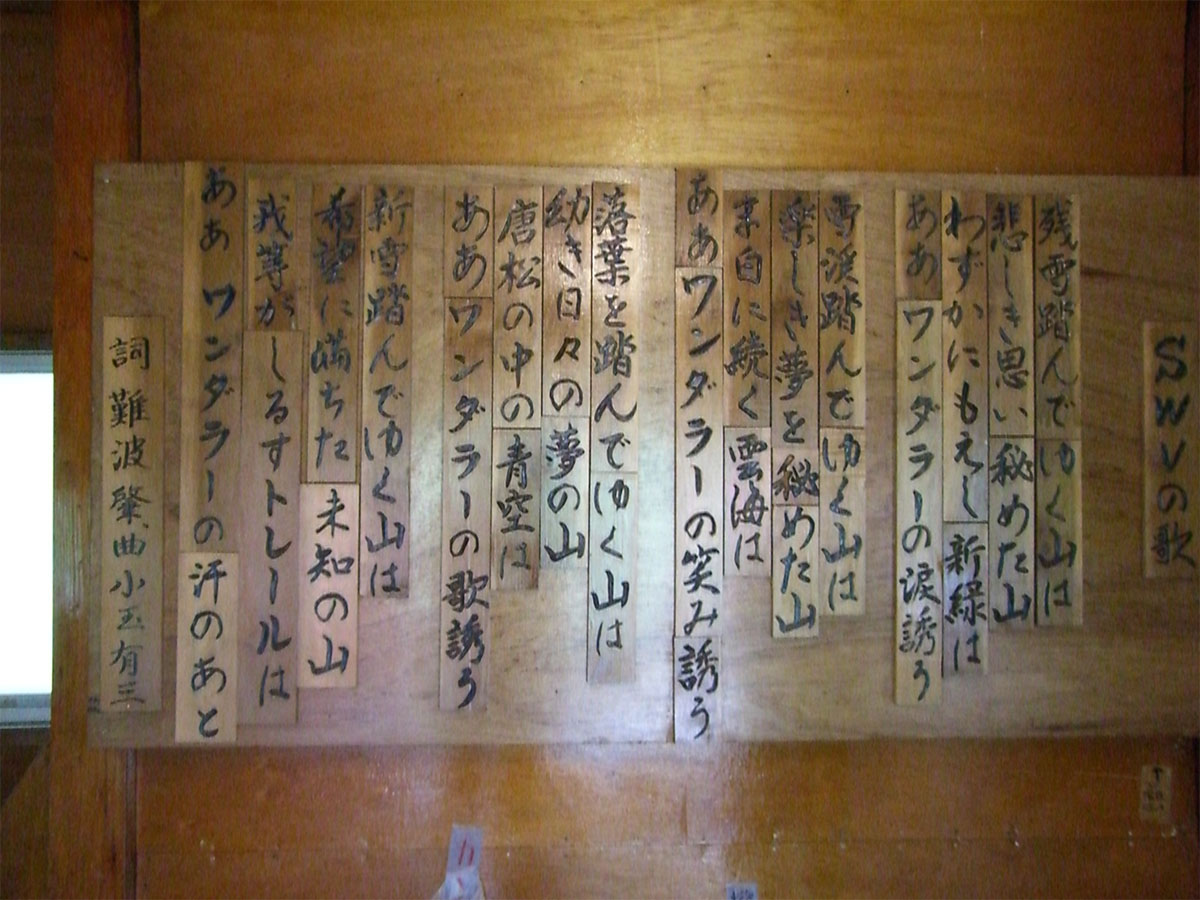 SWVの歌
残雪踏んでゆく山は
悲しき思い秘めた山
わずかにもえし新緑は
ああワンダラーの涙誘う
雪渓踏んでゆく山は
楽しき夢を秘めた山
末白に続く雲海は
ああワンダラーの笑み誘う
落葉を踏んでゆく山は
幼き日々の夢の山
唐松の中の青空は
ああワンダラーの歌誘う
新雪踏んでゆく山は
希望に満ちた未知の山
我等がしるすトレールは
ああワンダラーの汗のあと
詞難波肇、曲小玉有三